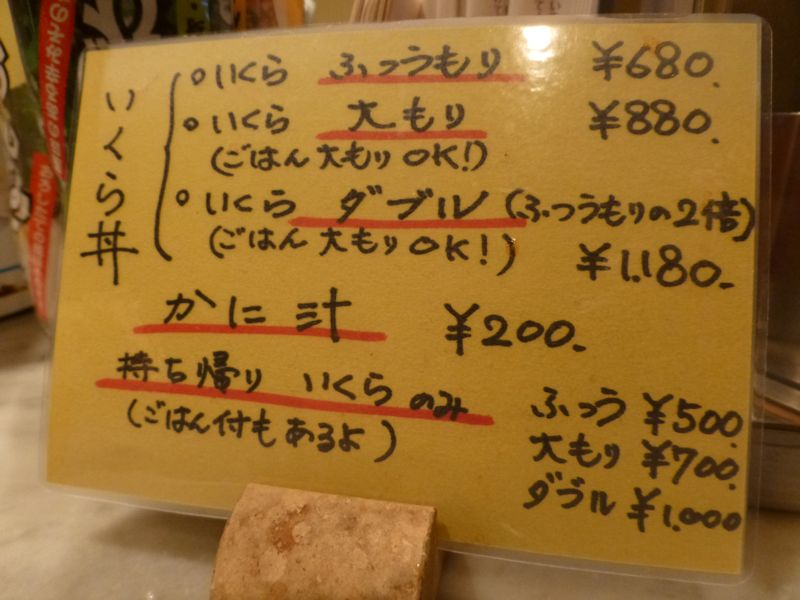 いくら丼
○いくら ふつうもり ¥680.
○いくら 大もり ¥880.
(ごはん 大もり OK!)
○いくら ダブル (ふつうもりの2倍)
(ごはん 大もり OK!) ¥1.180.
かに汁 ¥200.
持ち帰り いくらのみ
(ごはん付もあるよ)
ふつう ¥500.
大もり ¥700.
ダブル ¥1.000